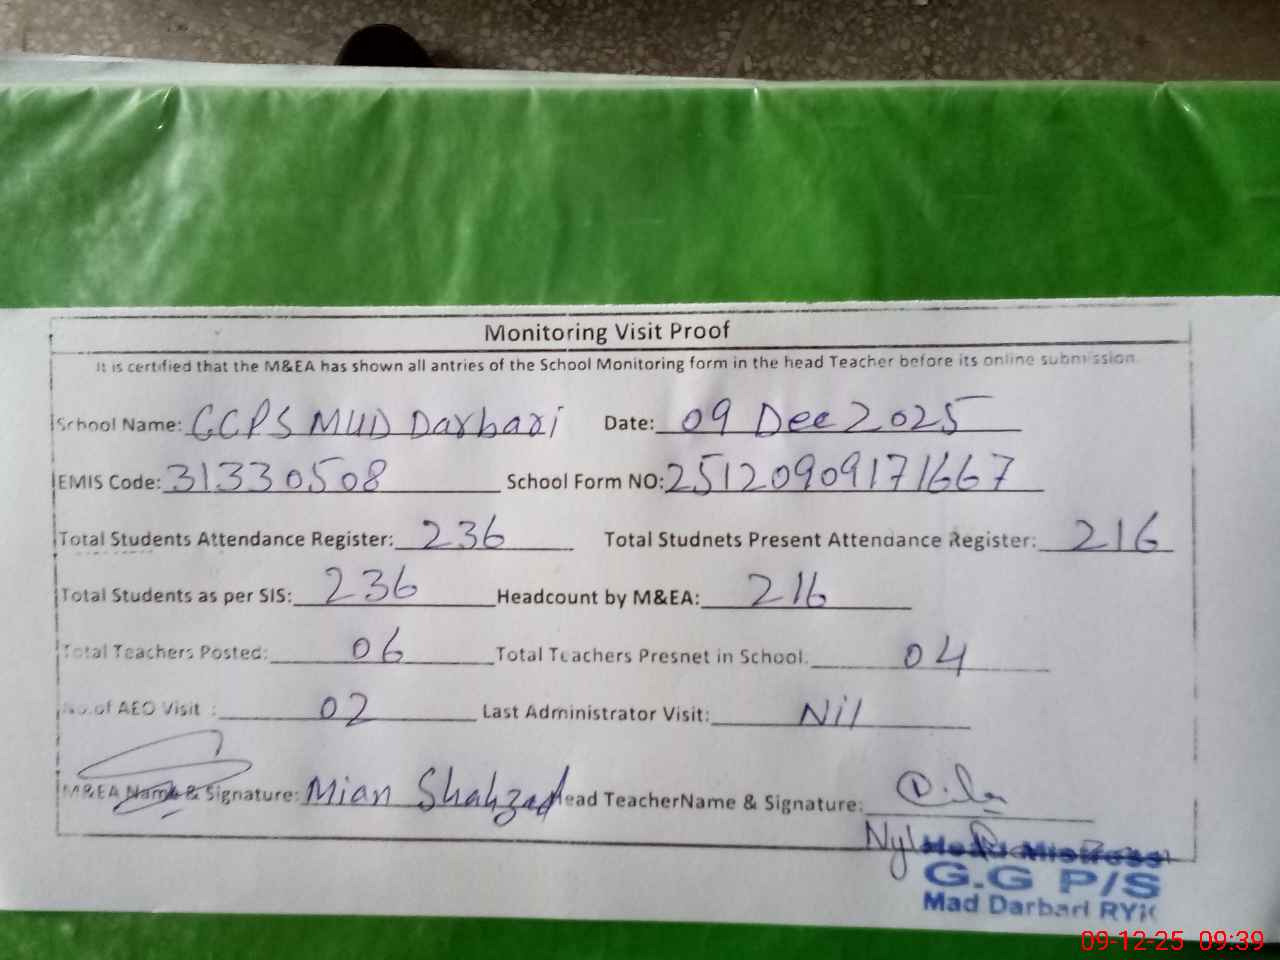 Monitoring Visit Proof
It is certified that the M&EA has shown all antries of the School Monitoring form in the head Teacher before its online submission
School Name: GGPS MUD Darbari Date: 09 Dec 2025
EMIS Code: 31330508 School Form NO: 25120909171667
Total Students Attendance Register: 236 Total Studnets Present Attendance Register: 216
Total Students as per SIS: 236 Headcount by M&EA: 216
Total Teachers Posted: 06 Total Teachers Presnet in School. 04
No.of AEO Visit : 02 Last Administrator Visit: Nil
M&EA Name & Signature: Mian Shahzad Head TeacherName & Signature:
Head Mistress
G.G P/S
Mad Darbari RYK
09-12-25 09:39